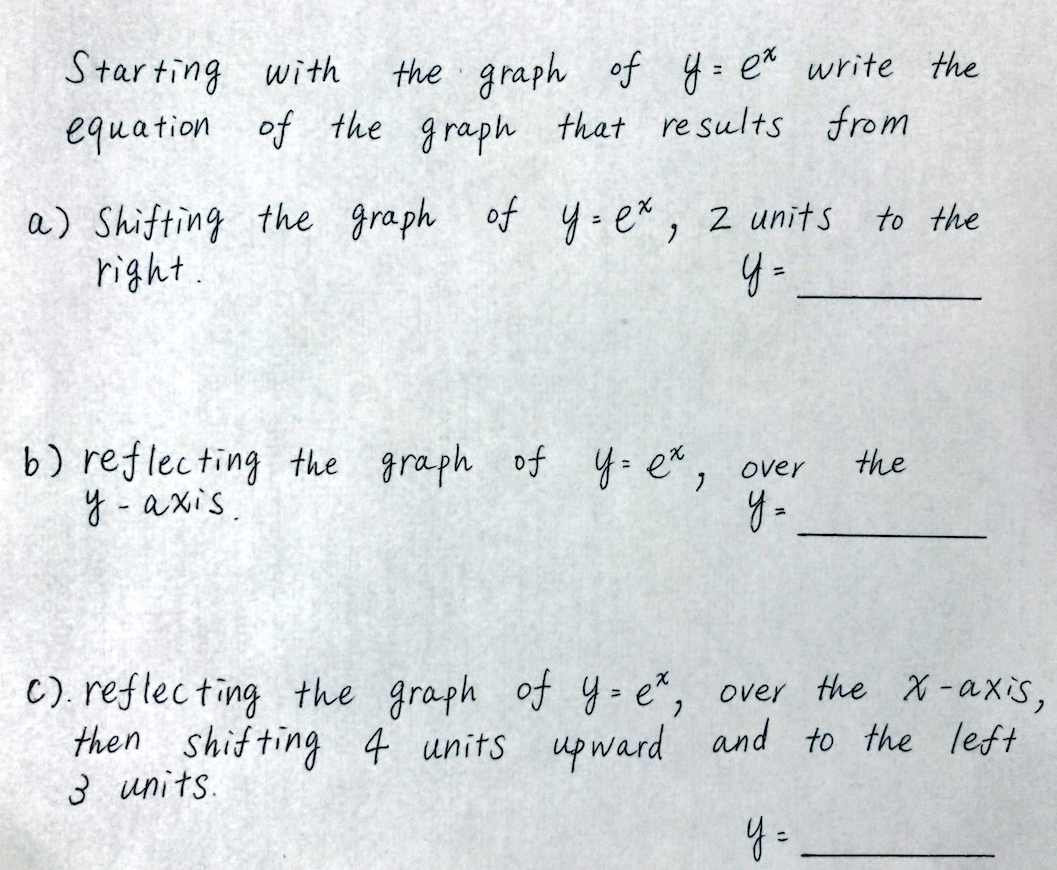 Starting with the graph of y = eˣ write the
equation of the graph that results from
a) Shifting the graph of y = eˣ, 2 units to the
right.
y = ______
b) reflecting the graph of y = eˣ, over the
y-axis.
y = ______
c). reflecting the graph of y = eˣ, over the x-axis,
then shifting 4 units upward and to the left
3 units.
y = ______